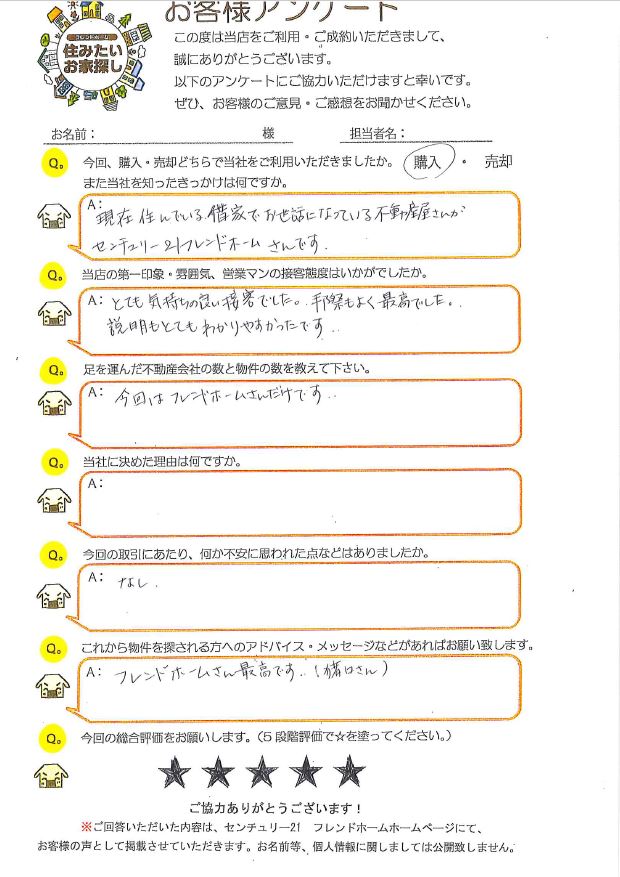 お客様アンケート
フレンドホーム
住みたい
お家探し
この度は当店をご利用・ご成約いただきまして、
誠にありがとうございます。
以下のアンケートにご協力いただけますと幸いです。
ぜひ、お客様のご意見・ご感想をお聞かせください。
お名前： 様 担当者名：
Q。 今回、購入・売却どちらで当社をご利用いただきましたか。 購入 ・ 売却
また当社を知ったきっかけは何ですか。
A： 現在住んでいる借家でお世話になっている不動産屋さんが
センチュリー21フレンドホームさんです。
Q。 当店の第一印象・雰囲気、営業マンの接客態度はいかがでしたか。
A： とても気持ちの良い接客でした。手際もよく最高でした。
説明もとてもわかりやすかったです..
Q。 足を運んだ不動産会社の数と物件の数を教えて下さい。
A： 今回はフレンドホームさんだけです..
Q。 当社に決めた理由は何ですか。
A：
Q。 今回の取引にあたり、何か不安に思われた点などはありましたか。
A： なし.
Q。 これから物件を探される方へのアドバイス・メッセージなどがあればお願い致します。
A： フレンドホームさん最高です..（猪口さん）
Q。 今回の総合評価をお願いします。（5段階評価で☆を塗ってください。）
★ ★ ★ ★ ★
ご協力ありがとうございます！
※ご回答いただいた内容は、センチュリー21 フレンドホームホームページにて、
お客様の声として掲載させていただきます。お名前等、個人情報に関しましては公開致しません。